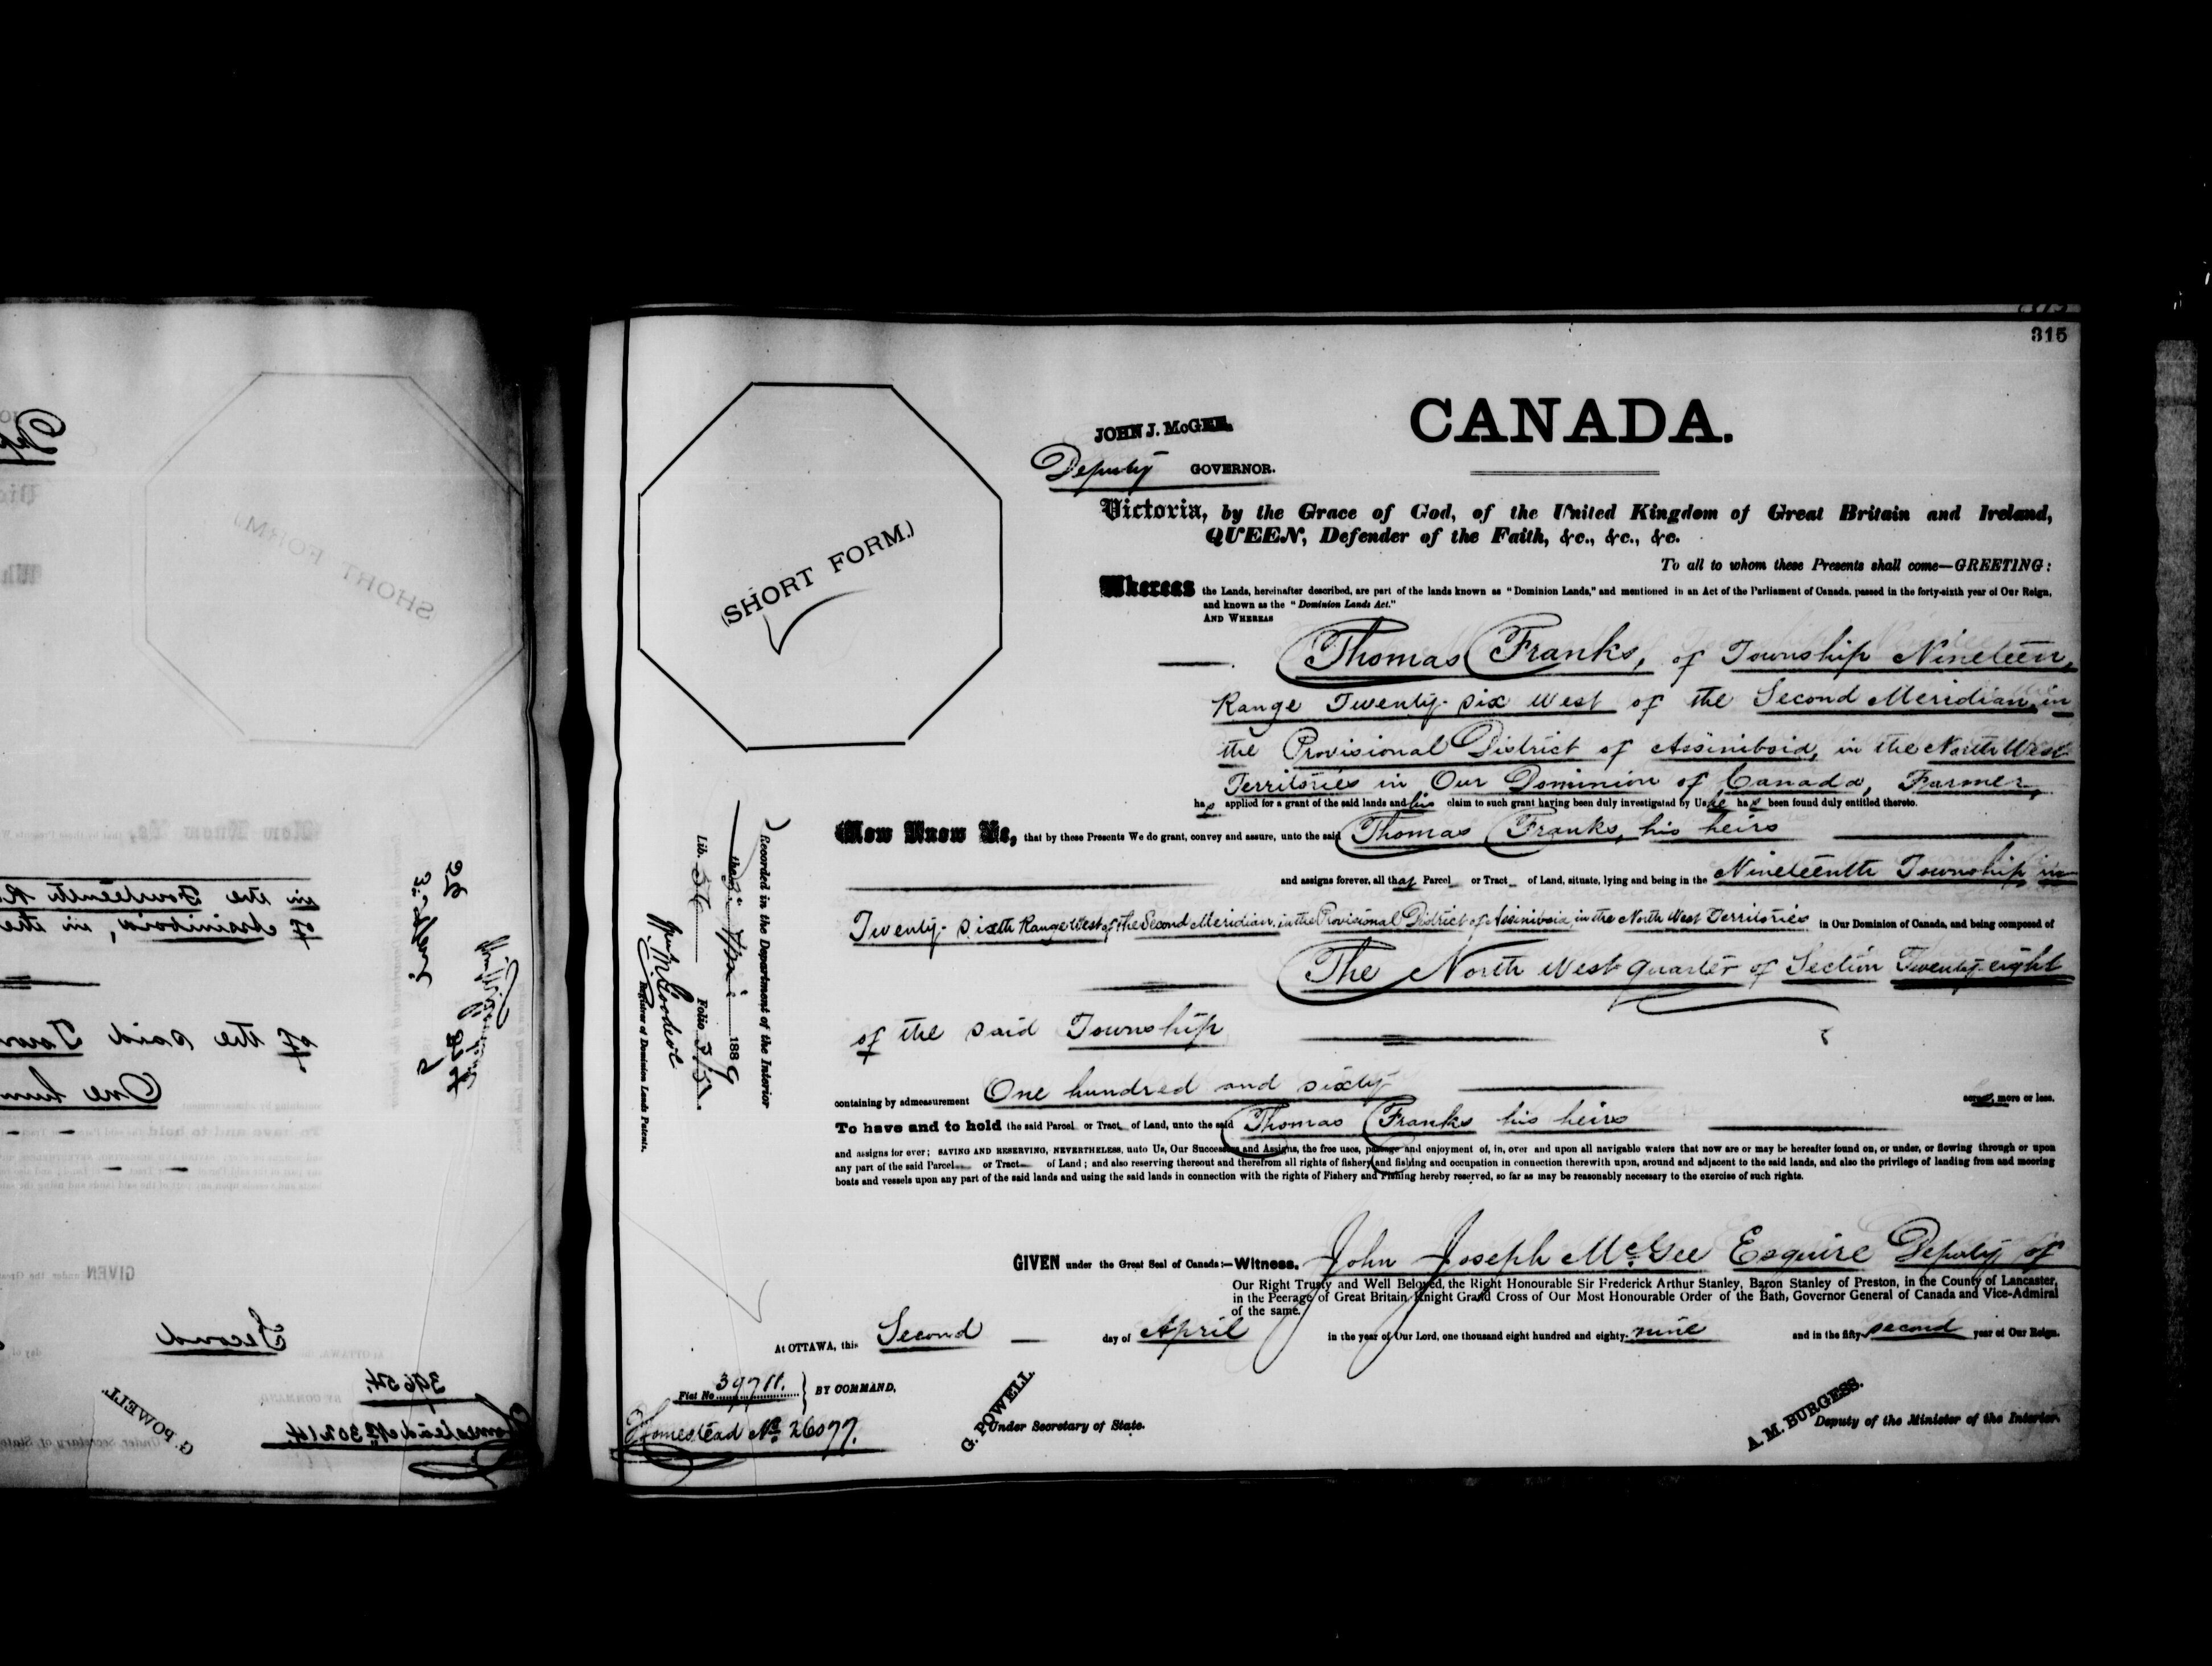 315
CANADA.
JOHN J. McGEE.
Deputy GOVERNOR.
(SHORT FORM.)
Victoria, by the Grace of God, of the United Kingdom of Great Britain and Ireland,
QUEEN, Defender of the Faith, &c., &c., &c.
To all to whom these Presents shall come—GREETING:
Whereas the Lands, hereinafter described, are part of the lands known as "Dominion Lands," and mentioned in an Act of the Parliament of Canada, passed in the forty-sixth year of Our Reign,
and known as the "Dominion Lands Act."
AND WHEREAS
Thomas Franks, of Township Nineteen,
Range Twenty-six West of the Second Meridian, in
the Provisional District of Assiniboia, in the North West
Territories in Our Dominion of Canada, Farmer,
has applied for a grant of the said lands and his claim to such grant having been duly investigated by Us he has been found duly entitled thereto.
Now Know Ye, that by these Presents We do grant, convey and assure, unto the said Thomas Franks, his heirs
and assigns forever, all that Parcel or Tract of Land, situate, lying and being in the Nineteenth Township in
Twenty-sixth Range West of the Second Meridian, in the Provisional District of Assiniboia, in the North West Territories in Our Dominion of Canada, and being composed of
The North West quarter of Section Twenty-eight
of the said Township
containing by admeasurement One hundred and sixty acres, more or less.
To have and to hold the said Parcel or Tract of Land, unto the said Thomas Franks his heirs
and assigns for ever; SAVING AND RESERVING, NEVERTHELESS, unto Us, Our Successors and Assigns, the free uses, passage and enjoyment of, in, over and upon all navigable waters that now are or may be hereafter found on, or under, or flowing through or upon
any part of the said Parcel or Tract of Land; and also reserving thereout and therefrom all rights of fishery and fishing and occupation in connection therewith upon, around and adjacent to the said lands, and also the privilege of landing from and mooring
boats and vessels upon any part of the said lands and using the said lands in connection with the rights of Fishery and Fishing hereby reserved, so far as may be reasonably necessary to the exercise of such rights.
GIVEN under the Great Seal of Canada:—Witness, John Joseph McGee Esquire Deputy of
Our Right Trusty and Well Beloved, the Right Honourable Sir Frederick Arthur Stanley, Baron Stanley of Preston, in the County of Lancaster,
in the Peerage of Great Britain, Knight Grand Cross of Our Most Honourable Order of the Bath, Governor General of Canada and Vice-Admiral
of the same.
At OTTAWA, this Second day of April in the year of Our Lord, one thousand eight hundred and eighty-nine and in the fifty-second year of Our Reign.
Fiat No. 39711. } BY COMMAND,
Homestead No. 26077.
G. POWELL
Under Secretary of State.
A. M. BURGESS.
Deputy of the Minister of the Interior.
Recorded in the Department of the Interior
the 3rd 1889
Lib. Folio 315.
Registrar of Dominion Lands Patents.